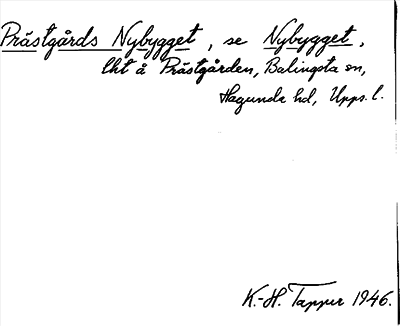 Prästgårds Nybygget, se Nybygget,
lht å Prästgården, Balingsta sn,
Hagunda hd, Upps. l.
K.-H. Tapper 1946.